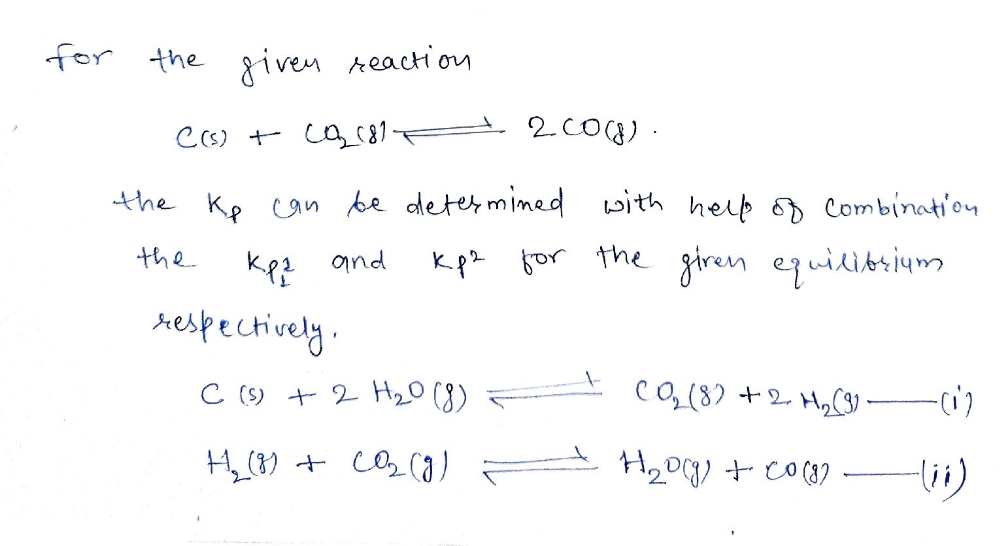 for the given reaction
C(s) + CO₂(g) ⇌ 2 CO(g).
the Kp can be determined with help of combination
the Kp1 and Kp2 for the given equilibrium
respectively.
C (s) + 2 H₂O (g) ⇌ CO₂(g) + 2 H₂(g) —(i)
H₂(g) + CO₂(g) ⇌ H₂O(g) + CO(g) —(ii)